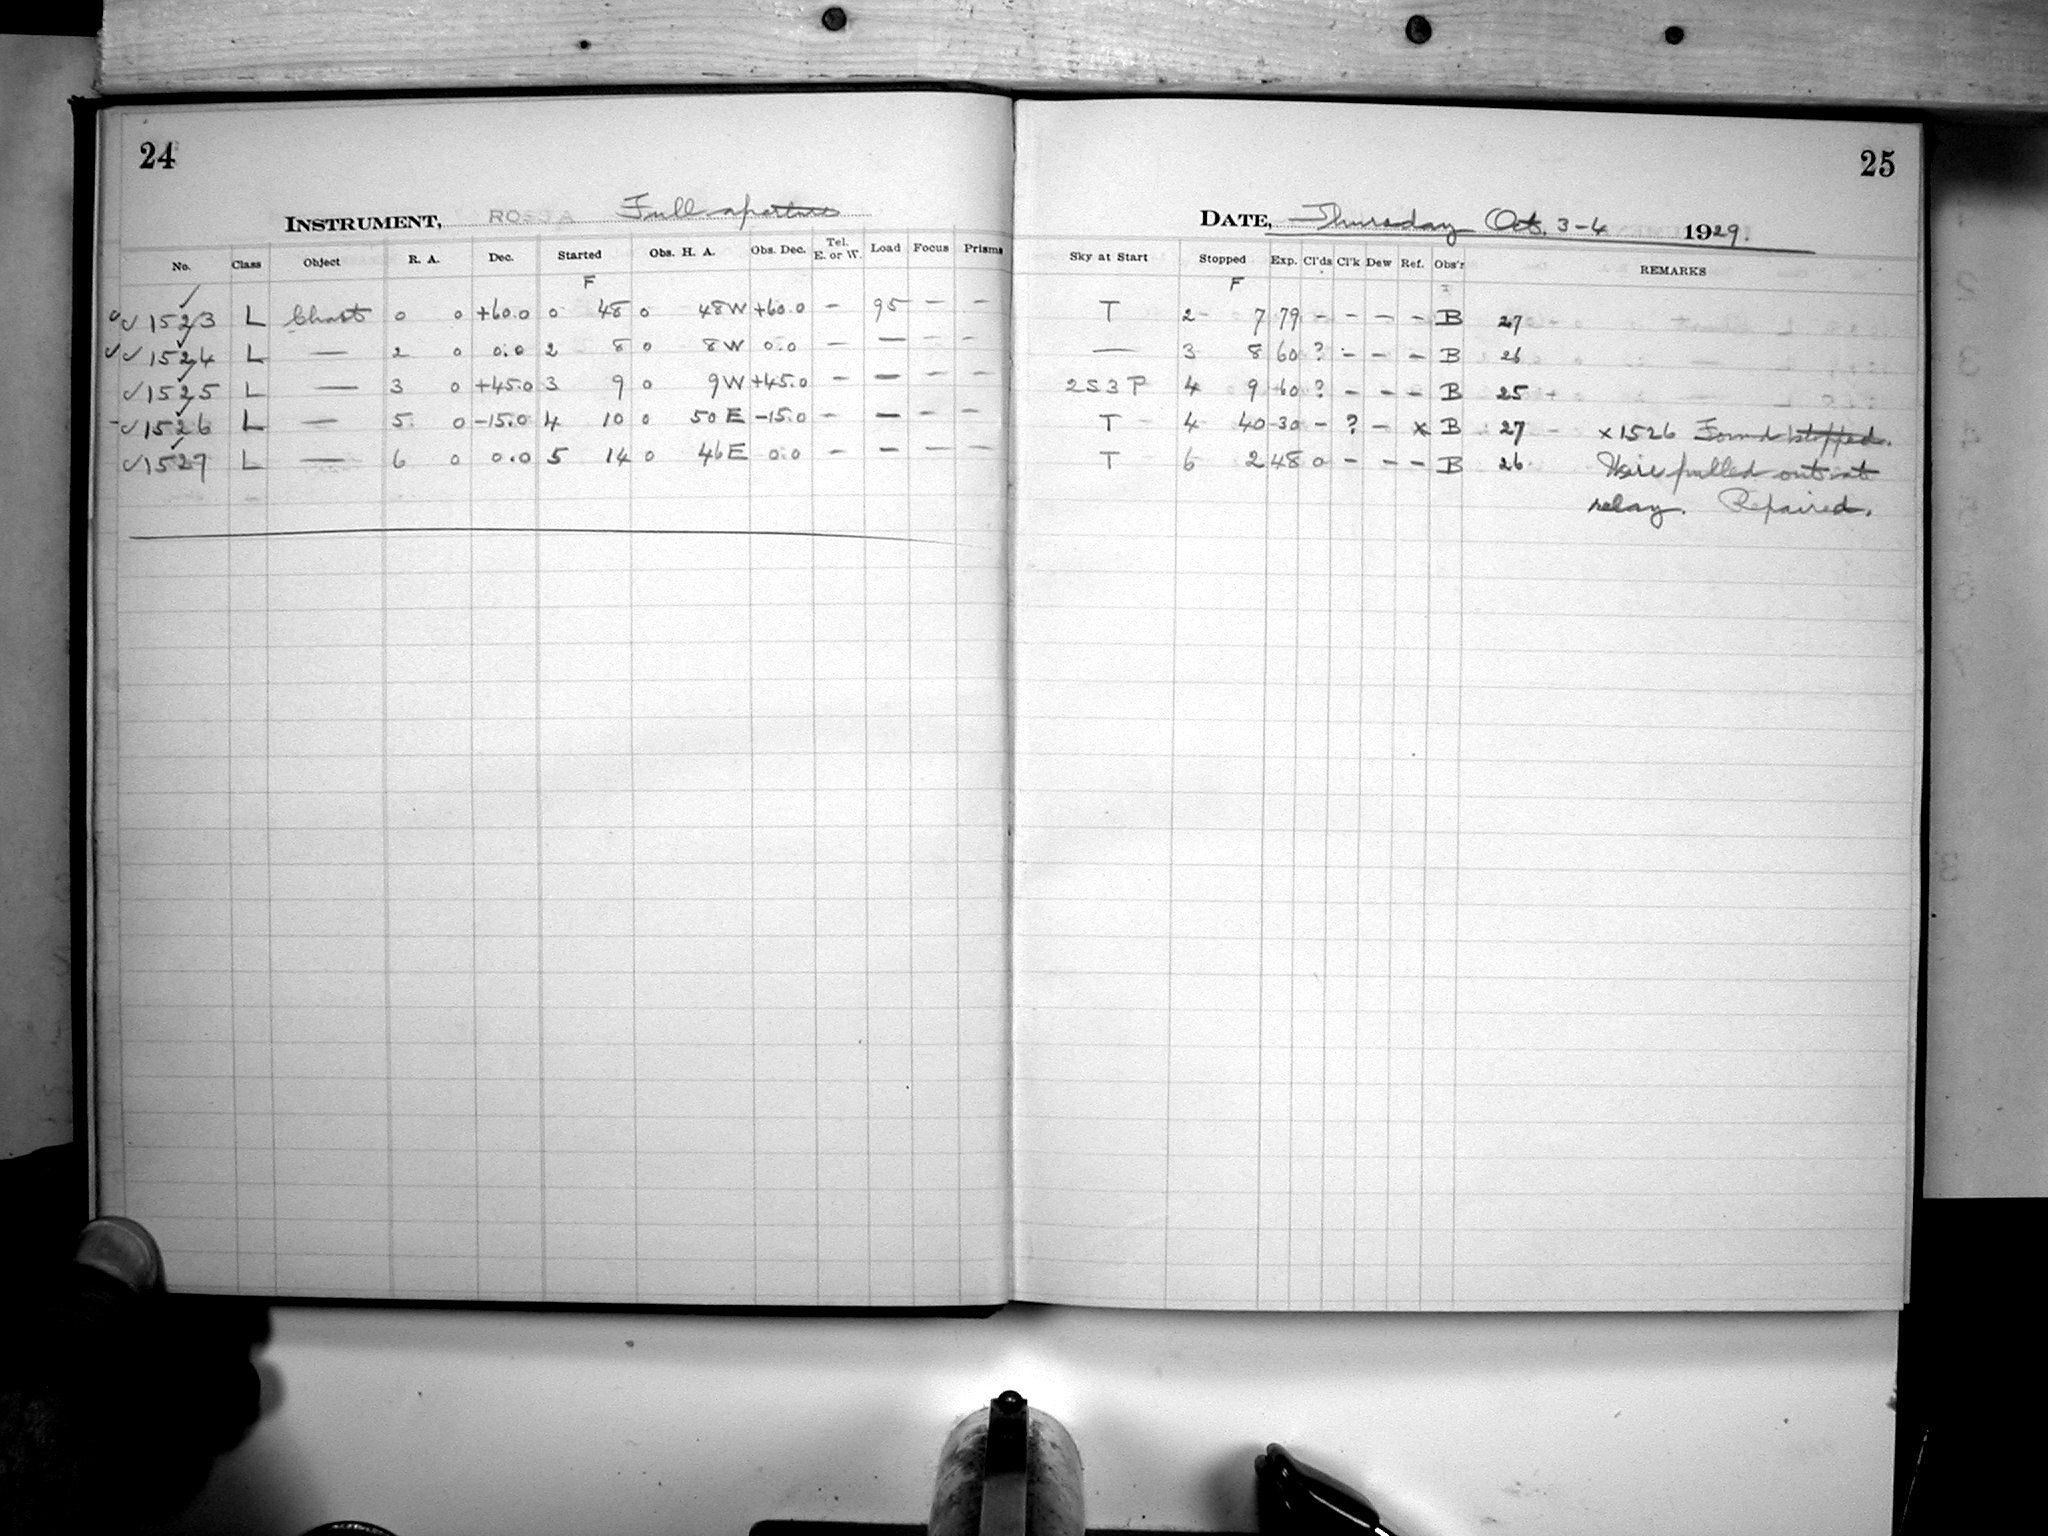 24
INSTRUMENT, Full aperture
No. Class Object R. A. Dec. Started Obs. H. A. Obs. Dec. Tel. E. or W. Load Focus Prisms
F
✓ ✓ 1523 L Chart 0 0 +60.0 0 48 0 48W +60.0 — 95 — —
✓ ✓ 1524 L — 2 0 0.0 2 8 0 8W 0.0 — — — —
✓ 1525 L — 3 0 +45.0 3 9 0 9W +45.0 — — — —
- ✓ 1526 L — 5 0 -15.0 4 10 0 50 E -15.0 - — - —
✓ 1527 L — 6 0 0.0 5 14 0 46E 0.0 — — — —
25
DATE, Thursday Oct. 3-4 1929.
Sky at Start Stopped Exp. Cl'ds Cl'k Dew Ref. Obs'r REMARKS
F
T 2 7 79 - - - - B 27
— 3 8 60 ? - - - B 26
2S3P 4 9 60 ? - - - B 25
T 4 40 30 - ? - x B 27 x 1526 Found stopped.
T 6 2 48 0 - - - B 26 Wire pulled out at
relay. Repaired.